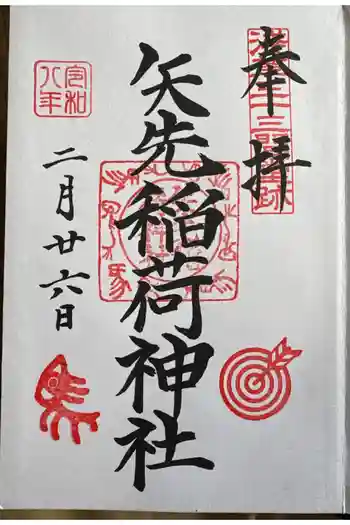 奉拝
矢先稲荷神社
令和
八年
二月廿六日